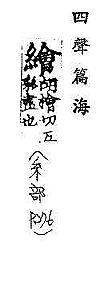 四聲篇海
繪 胡檜切五
彩畫也
(糸部